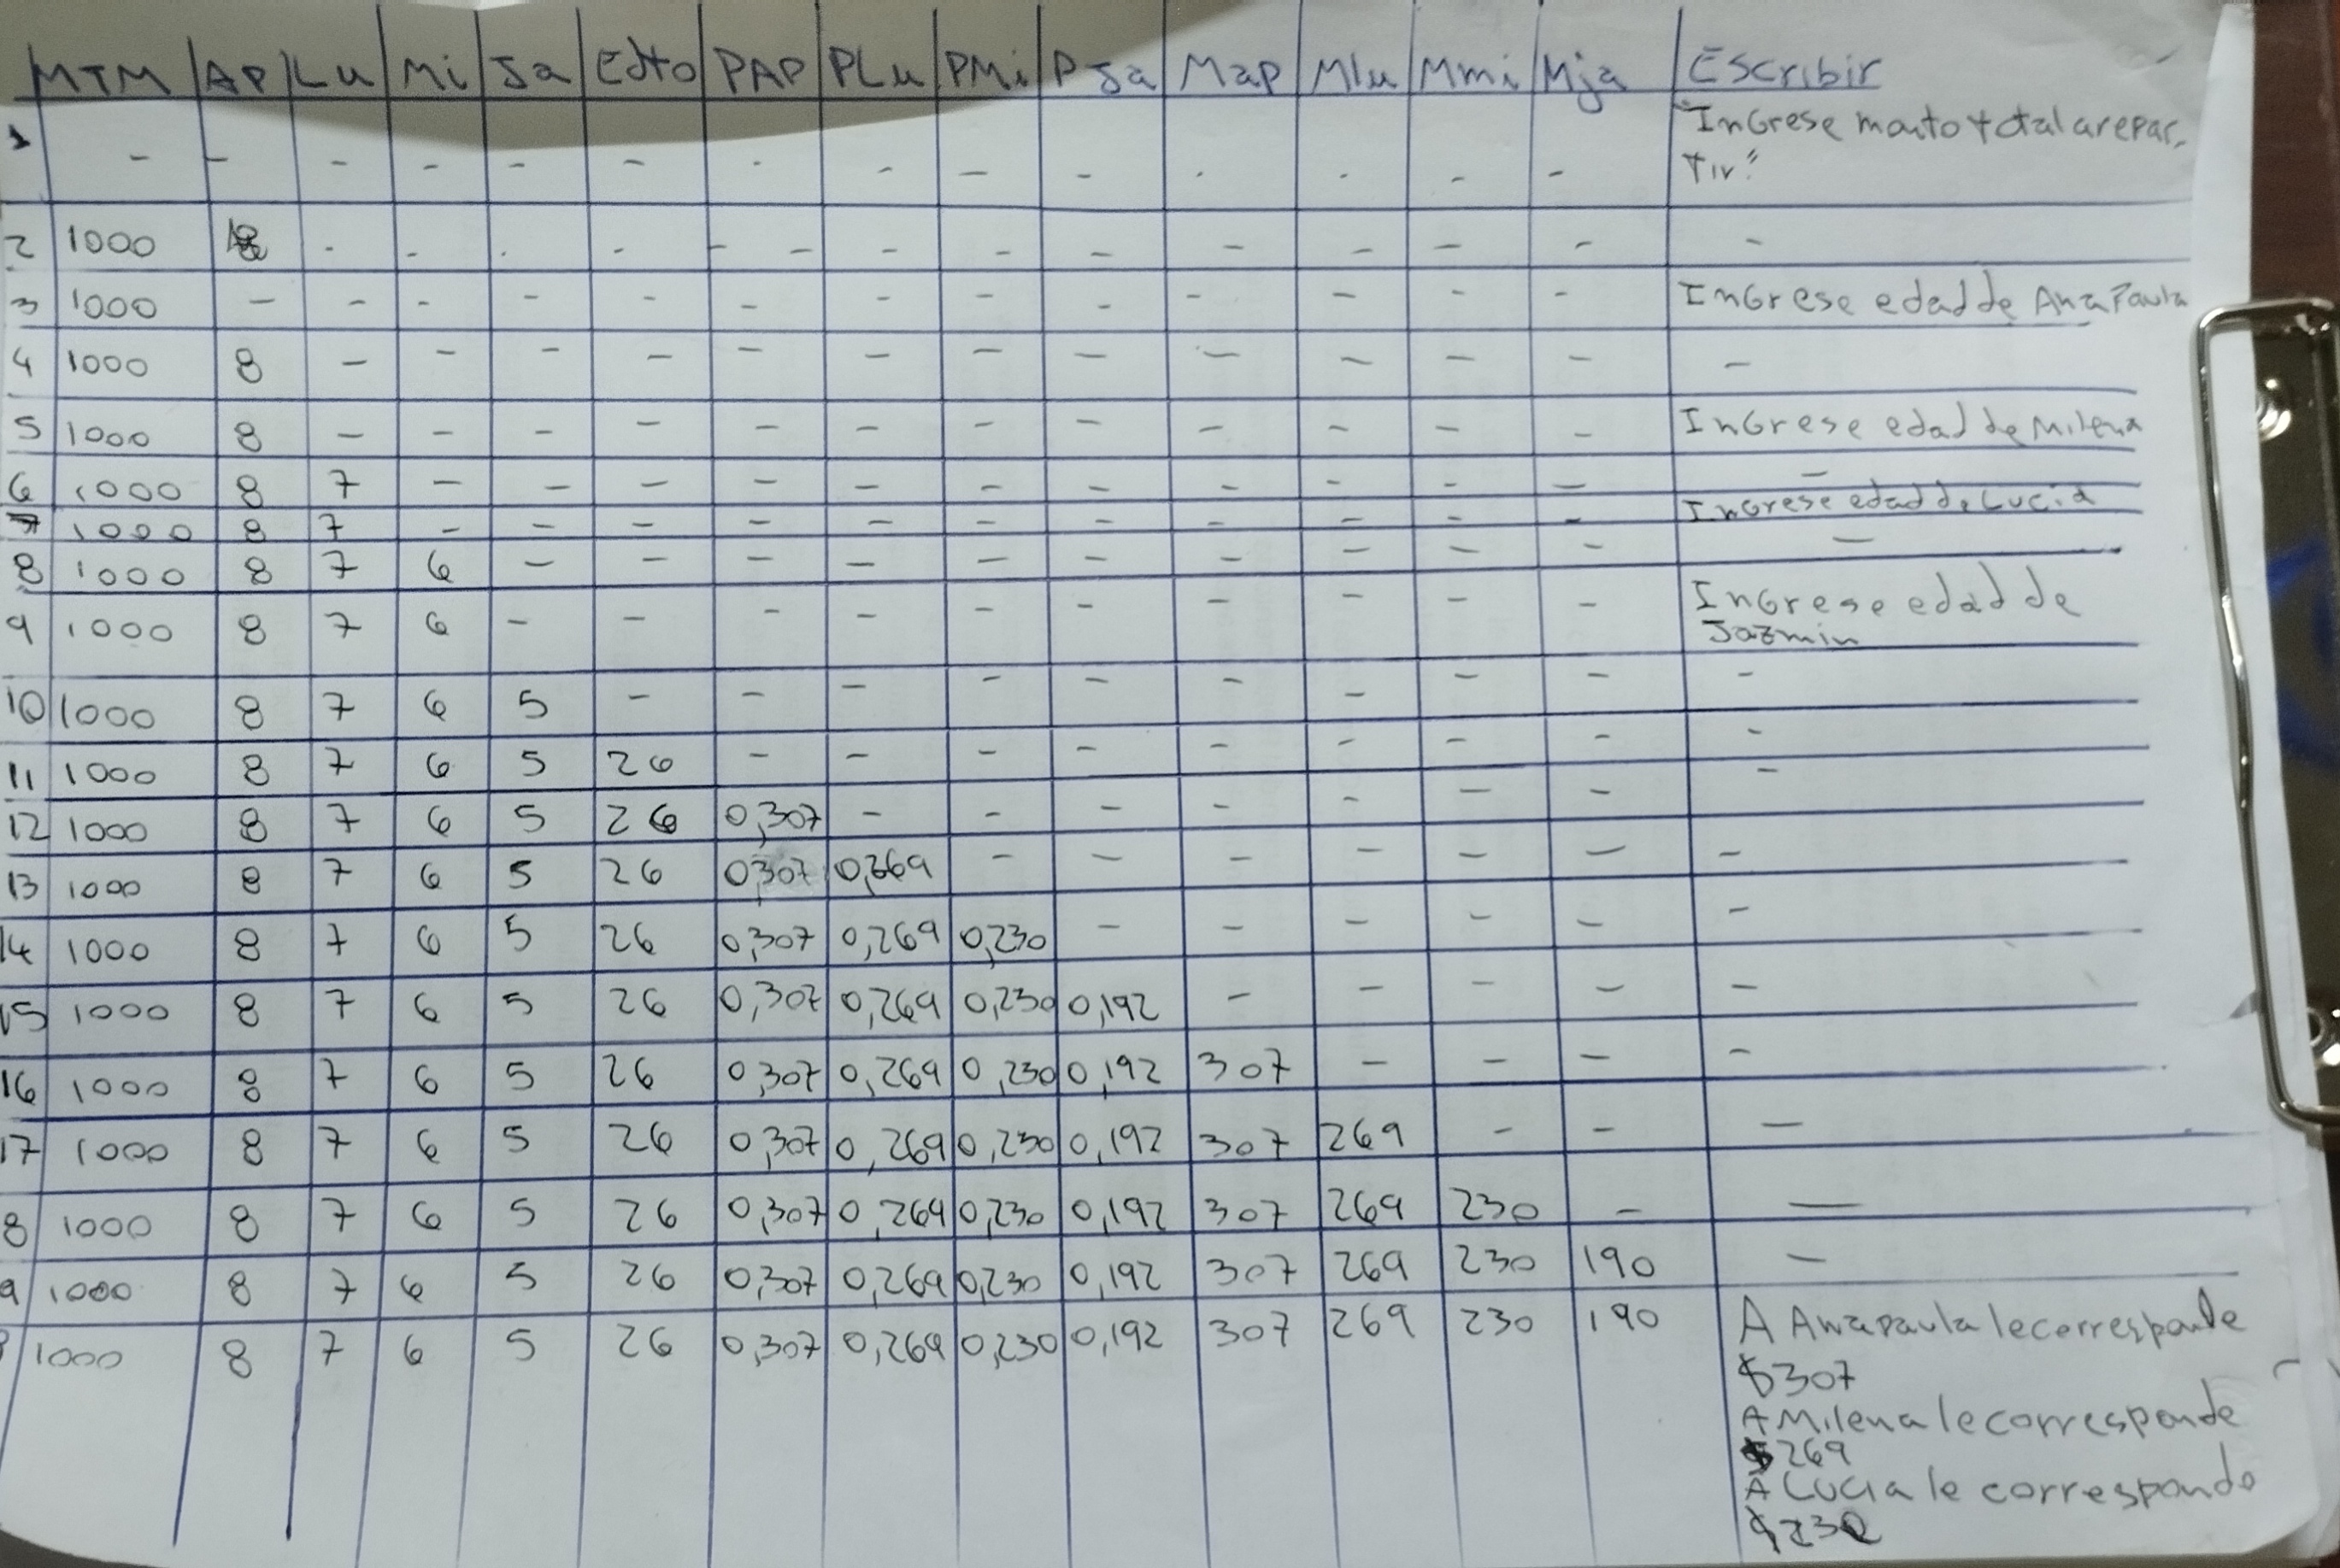 MTM AP Lu Mi Ja Edto PAP PLu PMi PJa Map Mlu Mmi Mja Escribir
1 - - - - - - - - - - - - - - "Ingrese monto total a repar-
tir"
2 1000 - - - - - - - - - - - - -
3 1000 - - - - - - - - - - - - - Ingrese edad de Ana Paula
4 1000 8 - - - - - - - - - - - - -
5 1000 8 - - - - - - - - - - - - Ingrese edad de Milena
6 1000 8 7 - - - - - - - - - - - -
7 1000 8 7 - - - - - - - - - - - Ingrese edad de Lucia
8 1000 8 7 6 - - - - - - - - - - -
9 1000 8 7 6 - - - - - - - - - - Ingrese edad de
Jazmin
10 1000 8 7 6 5 - - - - - - - - - -
11 1000 8 7 6 5 26 - - - - - - - - -
12 1000 8 7 6 5 26 0,307 - - - - - - - -
13 1000 8 7 6 5 26 0,307 0,269 - - - - - - -
14 1000 8 7 6 5 26 0,307 0,269 0,230 - - - - - -
15 1000 8 7 6 5 26 0,307 0,269 0,230 0,192 - - - - -
16 1000 8 7 6 5 26 0,307 0,269 0,230 0,192 307 - - - -
17 1000 8 7 6 5 26 0,307 0,269 0,230 0,192 307 269 - - -
8 1000 8 7 6 5 26 0,307 0,269 0,230 0,192 307 269 230 - -
9 1000 8 7 6 5 26 0,307 0,269 0,230 0,192 307 269 230 190 -
1000 8 7 6 5 26 0,307 0,269 0,230 0,192 307 269 230 190 A Ana paula le corresponde
$307
A Milena le corresponde
$269
A Lucia le corresponde
$230